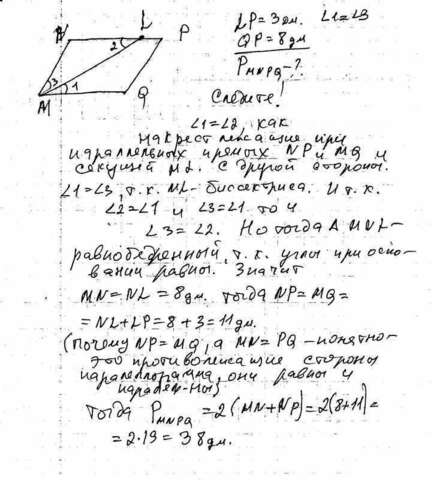 N L P
2
3
1
M Q
LP = 3дм. ∠1=∠3
QP = 8дм
P MNPQ - ?
Следите!
∠1=∠2, как
накрест лежащие при
параллельных прямых NP и MQ и
секущей ML. С другой стороны.
∠1=∠3, т.к. ML - биссектриса. И т.к.
∠2=∠1 и ∠3=∠1 то и
∠3 = ∠2. Но тогда Δ MNL -
равнобедренный, т.к. углы при осно-
вании равны. Значит
MN = NL = 8дм. тогда NP = MQ =
= NL + LP = 8 + 3 = 11дм.
(почему NP = MQ, а MN = PQ - понятно -
это противолежащие стороны
параллелограмма, они равны и
паралел-ны)
Тогда P MNPQ = 2(MN+NP) = 2(8+11) =
= 2·19 = 38дм.